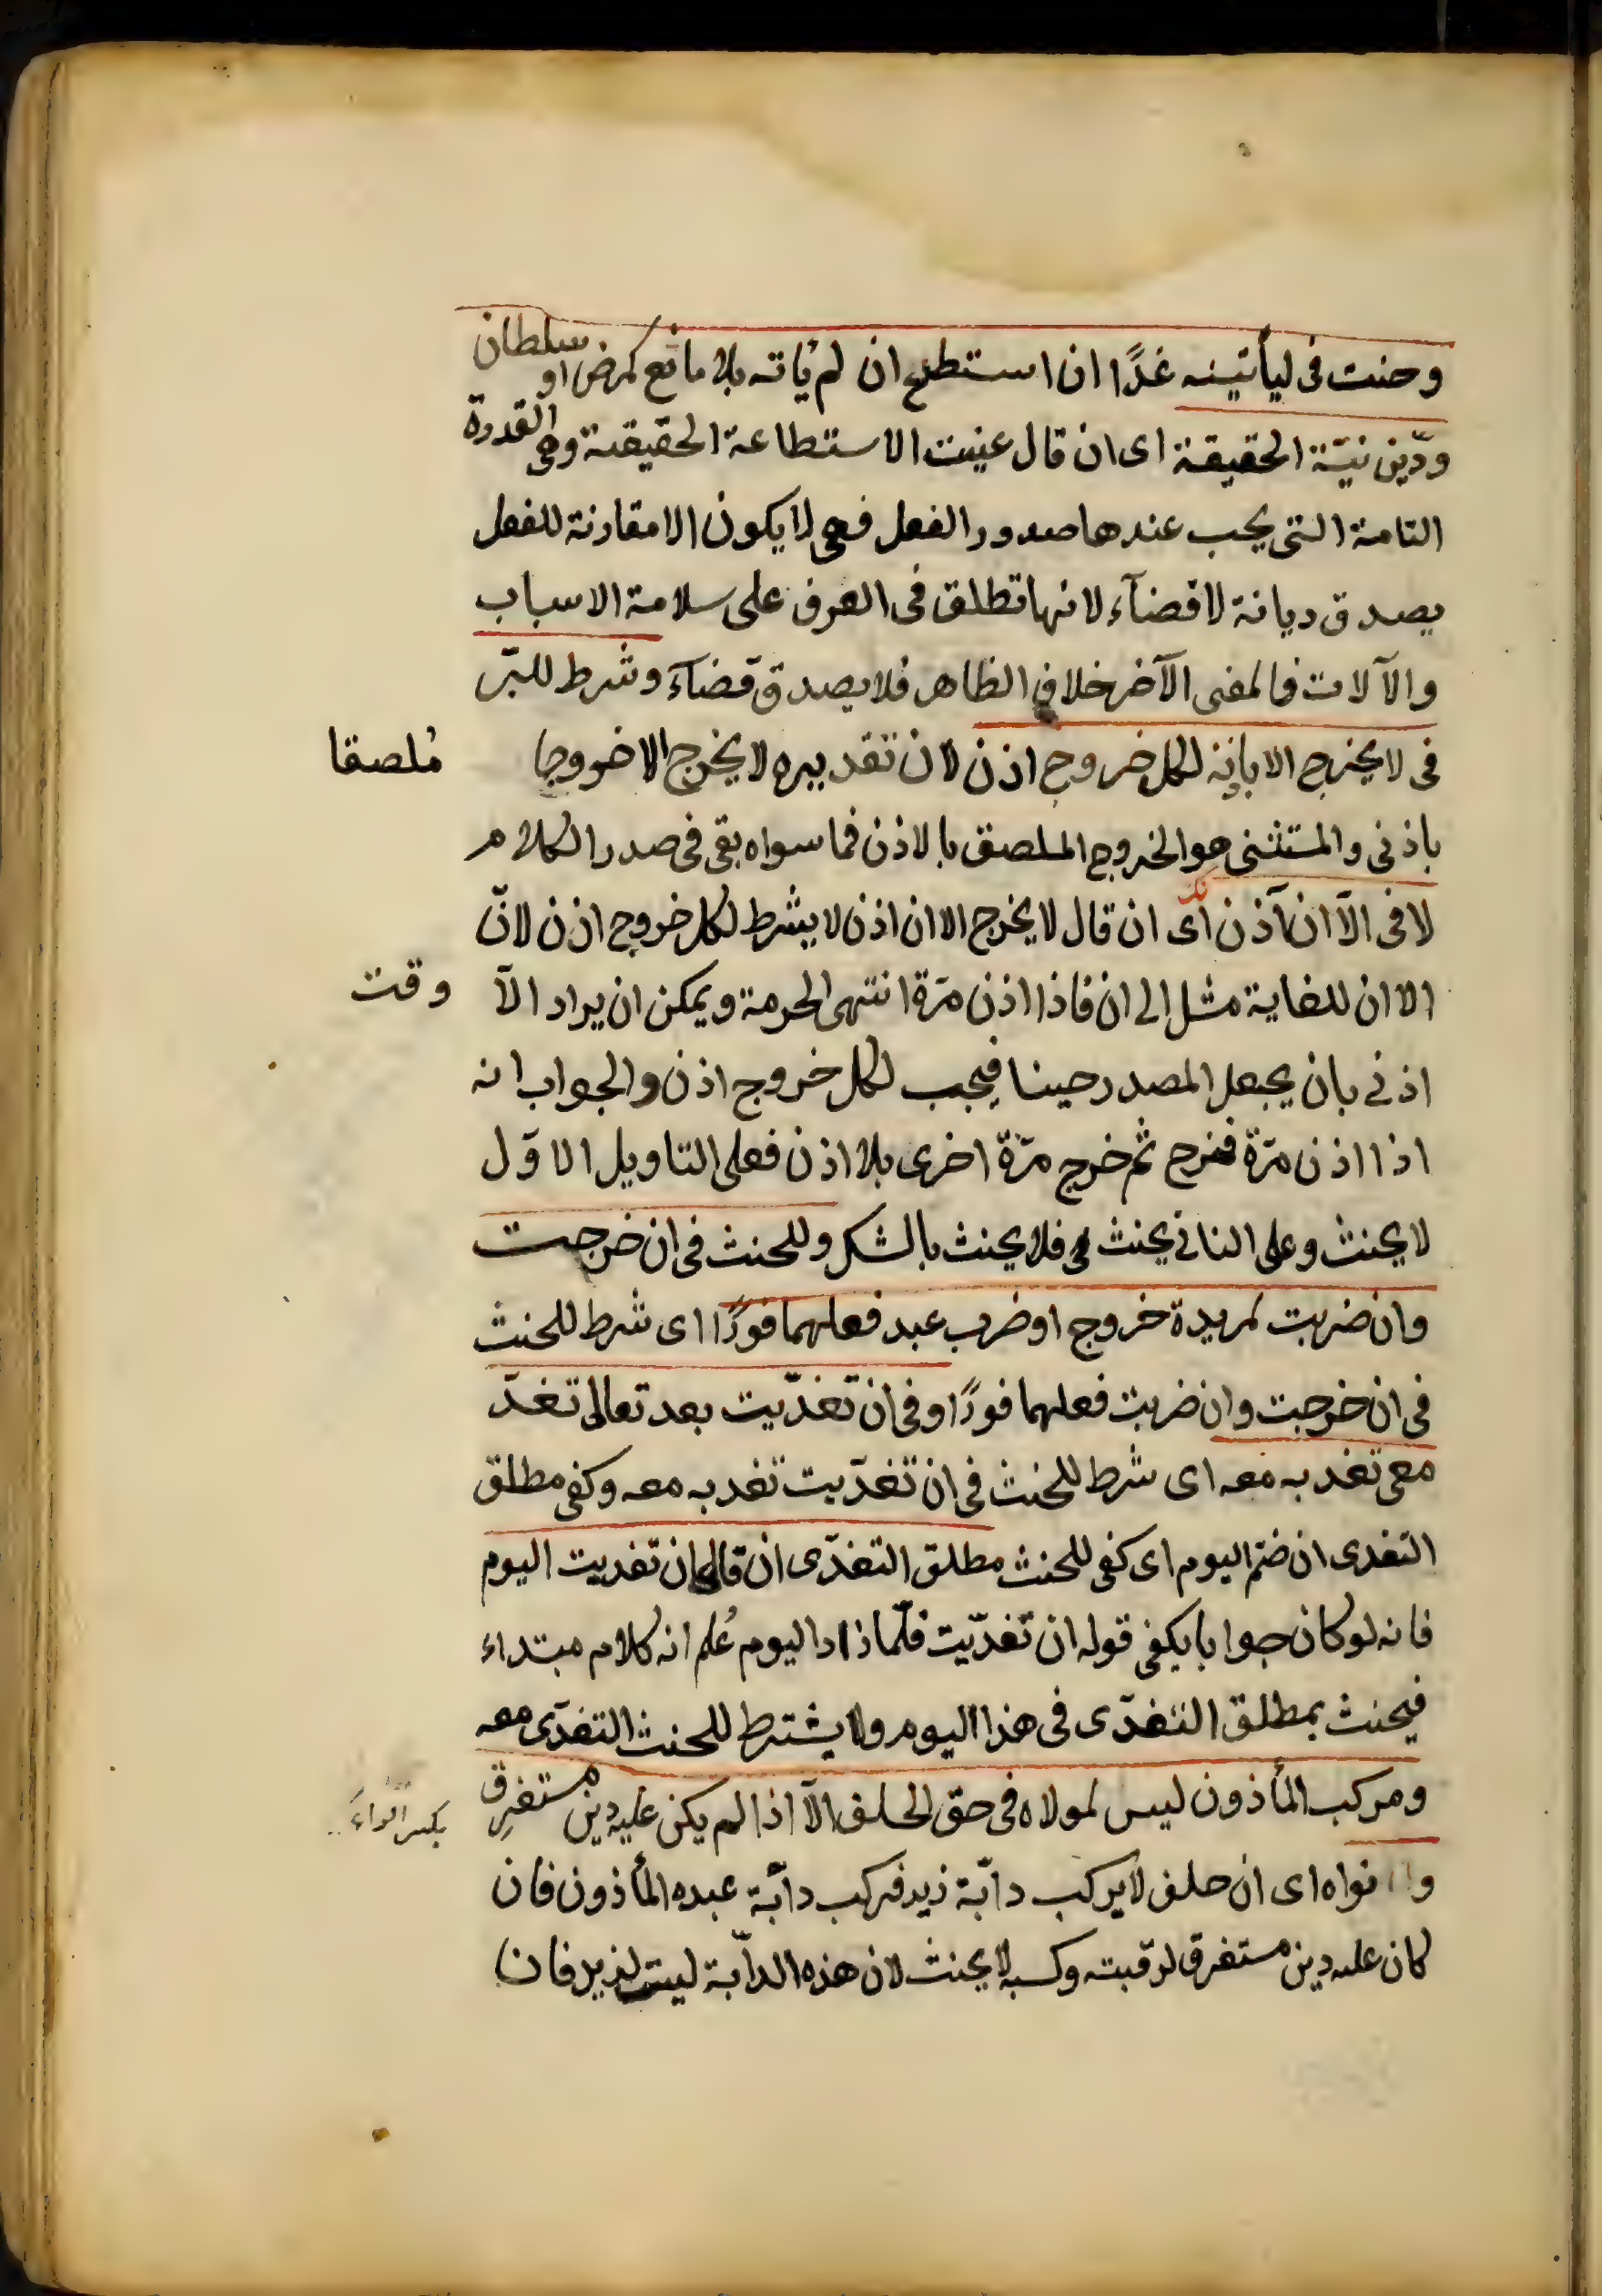 وحنث فى ليأتينه غدًا ان استطاع ان لم يُأته بلا مانع كمرض او سلطان
ودّين نيّة الحقيقة اى ان قال عنيت الاستطاعة الحقيقية وهى القدرة
التامة التى يجب عندها صدور الفعل فهى لا يكون الا مقارنة للفعل
يصدق ديانة لا قضآء لانها تطلق فى العرف على سلامة الاسباب
والآلات فالمعنى الآخر خلاف الظاهر فلا يصدق قضآء وشرط للبّر
فى لا يخرج الا باذنه لكل خروج اذن لان تقديره لا يخرج الا خروجا مُلصقا
باذنى والمستثنى هو الخروج الملصق بالاذن فما سواه بقى فى صدر الكلام
لا فى الّا ان آذن اى ان قال لا يخرج الا ان اذن لا يشرط لكل خروج اذن لانّ
الا ان للغاية مثل الى ان فاذا اذن مرّة انتهى الحرمة ويمكن ان يراد الّا وقت
اذنى بان يجعل المصدر حينا فيجب لكل خروج اذن والجواب انه
اذا اذن مرّة فخرج ثم خرج مرّة اخرى بلا اذن فعلى التاويل الاوّل
لا يحنث وعلى الثانى يحنث فلا يحنث بالشك وللحنث فى ان خرجت
وان ضربت لمريدة خروج او ضرب عبد فعلهما فورًا اى شرط للحنث
فى ان خرجت وان ضربت فعلهما فورًا وفى ان تغدّيت بعد تعالى تغدّ
معى تغديه معه اى شرط للحنث فى ان تغدّيت تغديه معه وكفى مطلق
التغدى ان ضم اليوم اى كفى للحنث مطلق التغدّى ان قال ان تغديت اليوم
فانه لو كان جوابا يكفى قوله ان تغدّيت فلّما زاد اليوم عُلم انه كلام مبتداء
فيحنث بمطلق التغدّى فى هذا اليوم ولا يشترط للحنث التغدّى معه
ومركب المأذون ليس لمولاه فى حقّ الحلف الّا اذا لم يكن عليه دين مستغرِق
بكسر الراء
نواه اى ان حلف لا يركب دابّة زيد فركب دابّة عبده المأذون فان
كان عليه دين مستغرق لرقبته وكسبه لا يحنث لان هذه الدابّة ليست لزيد فان